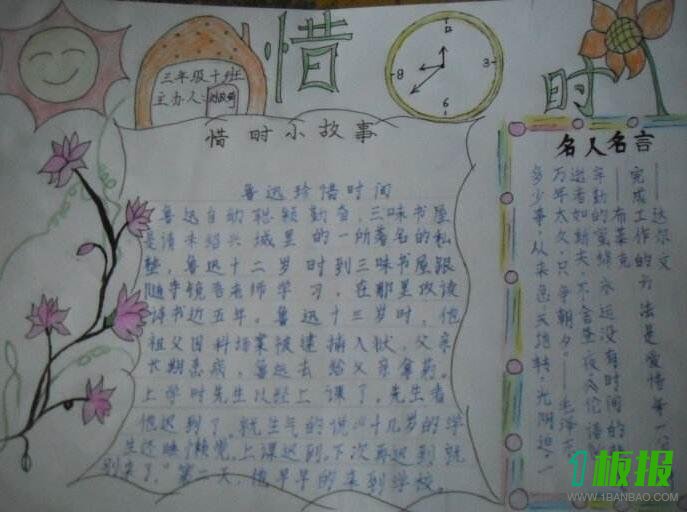 惜
时
三年级十班
主办人
3
6
惜时小故事
鲁迅珍惜时间
鲁迅自幼聪颖勤奋,三味书屋
是清末绍兴城里的一所著名的私
塾,鲁迅十二岁时到三味书屋跟
随寿镜吾老师学习,在那里攻读
诗书近五年。鲁迅十三岁时,他
祖父因科场案被逮捕入狱,父亲
长期患病,鲁迅去给父亲拿药。
上学时先生以经上课了,先生看
他迟到了,就生气的说“十几岁的学
生还睡懒觉,上课迟到,下次再迟到就
别来了。”第二天,他早早的来到学校。
名人名言
——达尔文
完成工作的方法是爱惜每一分
——布莱克
勤的蜜蜂永远没有时间的
逝者如斯夫,不舍昼夜 论语
万年太久,只争朝夕。——毛泽东
多少事,从来急,天地转,光阴迫,一
1板报
WWW.1BANBAO.COM